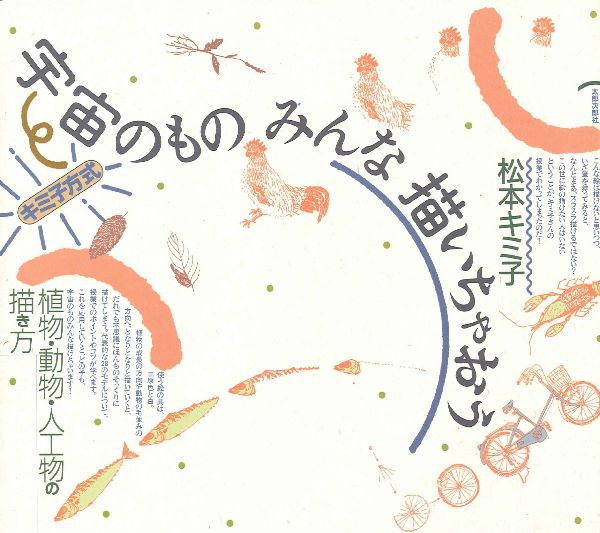 宇宙のもの みんな 描いちゃおう
キミ子方式
松本キミ子
太郎次郎社
こんな絵は描けないと思いつつ、
いざ筆を持ってみると、
なんとまあ、スラスラ描けるではない?
この世に絵の描けない人はいない
ということが、キミ子さんの
授業でわかってしまったのだ!
植物・動物・人工物の
描き方
使う絵の具は、
三原色と白。
植物の成長の方向や動物の毛並みの
方向へ、となりとなりと描いていくと、
だれでも不思議にほんものそっくりに
描けてしまう。代表的な28のモデルについて、
授業でのポイントやコツが学べます。
これを応用していくことの子も、
宇宙のものみんな描けちゃいます!